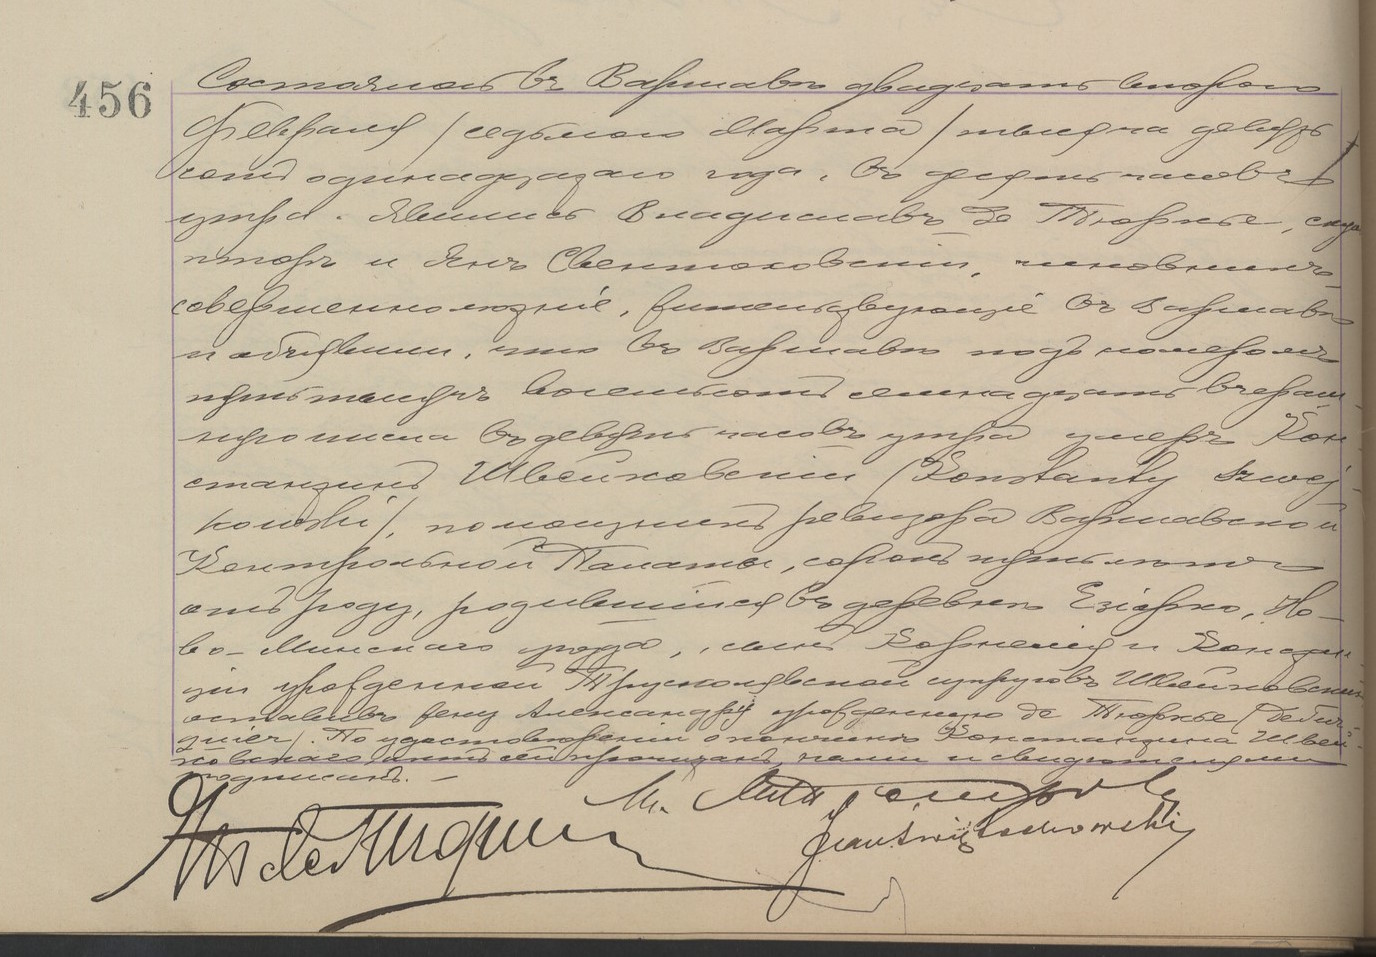 456
Состоялось въ Варшавѣ двадцать второго
Февраля /седьмого Марта/ тысяча девять
сотъ одинадцатаго года, въ десять часовъ
утра. Явились Владиславъ де Тюрнье, ску
пторъ и Янъ Свентоховскій, чиновникъ
совершеннолѣтніе, жительствующіе въ Варшавѣ
и объявили, что въ Варшавѣ подъ номеромъ
пять тысячъ восемьсотъ семнадцать вчераш-
няго числа въ девять часовъ утра умеръ Кон
стантинъ Швейковскій /Konstanty Szwej-
kowski/, помощникъ ревизора Варшавской
Контрольной Палаты, сорокъ пять лѣтъ
отъ роду, родившійся въ деревнѣ Езіорко, Но-
во-Минскаго уѣзда, сынъ Корнелія и Констан-
ціи урожденной Трусколявской супруговъ Швейковскихъ
оставивъ жену Александру урожденную де Тюрнье
По удостовѣреніи о кончинѣ Константина Швей-
ковскаго актъ сей прочитанъ, нами и свидѣтелями
подписанъ. –
Jan Świętochowski